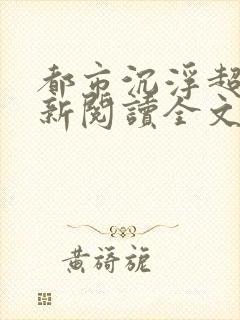 都市沉浮超
新閱讀全文
黃旖旎